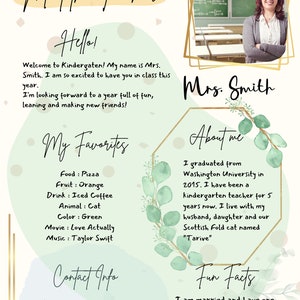 Hello!
Welcome to Kindergaten! My name is Mrs.
Smith, I am so excited to have you in class this
year.
I'm looking forward to a year full of fun,
leaning and making new friends!
Mrs. Smith
My Favorites
Food : Pizza
Fruit : Orange
Drink : Iced Coffee
Animal : Cat
Color : Green
Movie : Love Actually
Music : Taylor Swift
About me
I graduated from
Washington University in
2015. I have been a
kindergarten teacher for 5
years now. I live with my
husband, daughter and our
Scottish Fold cat named
"Tarive"
Contact Info
Fun Facts